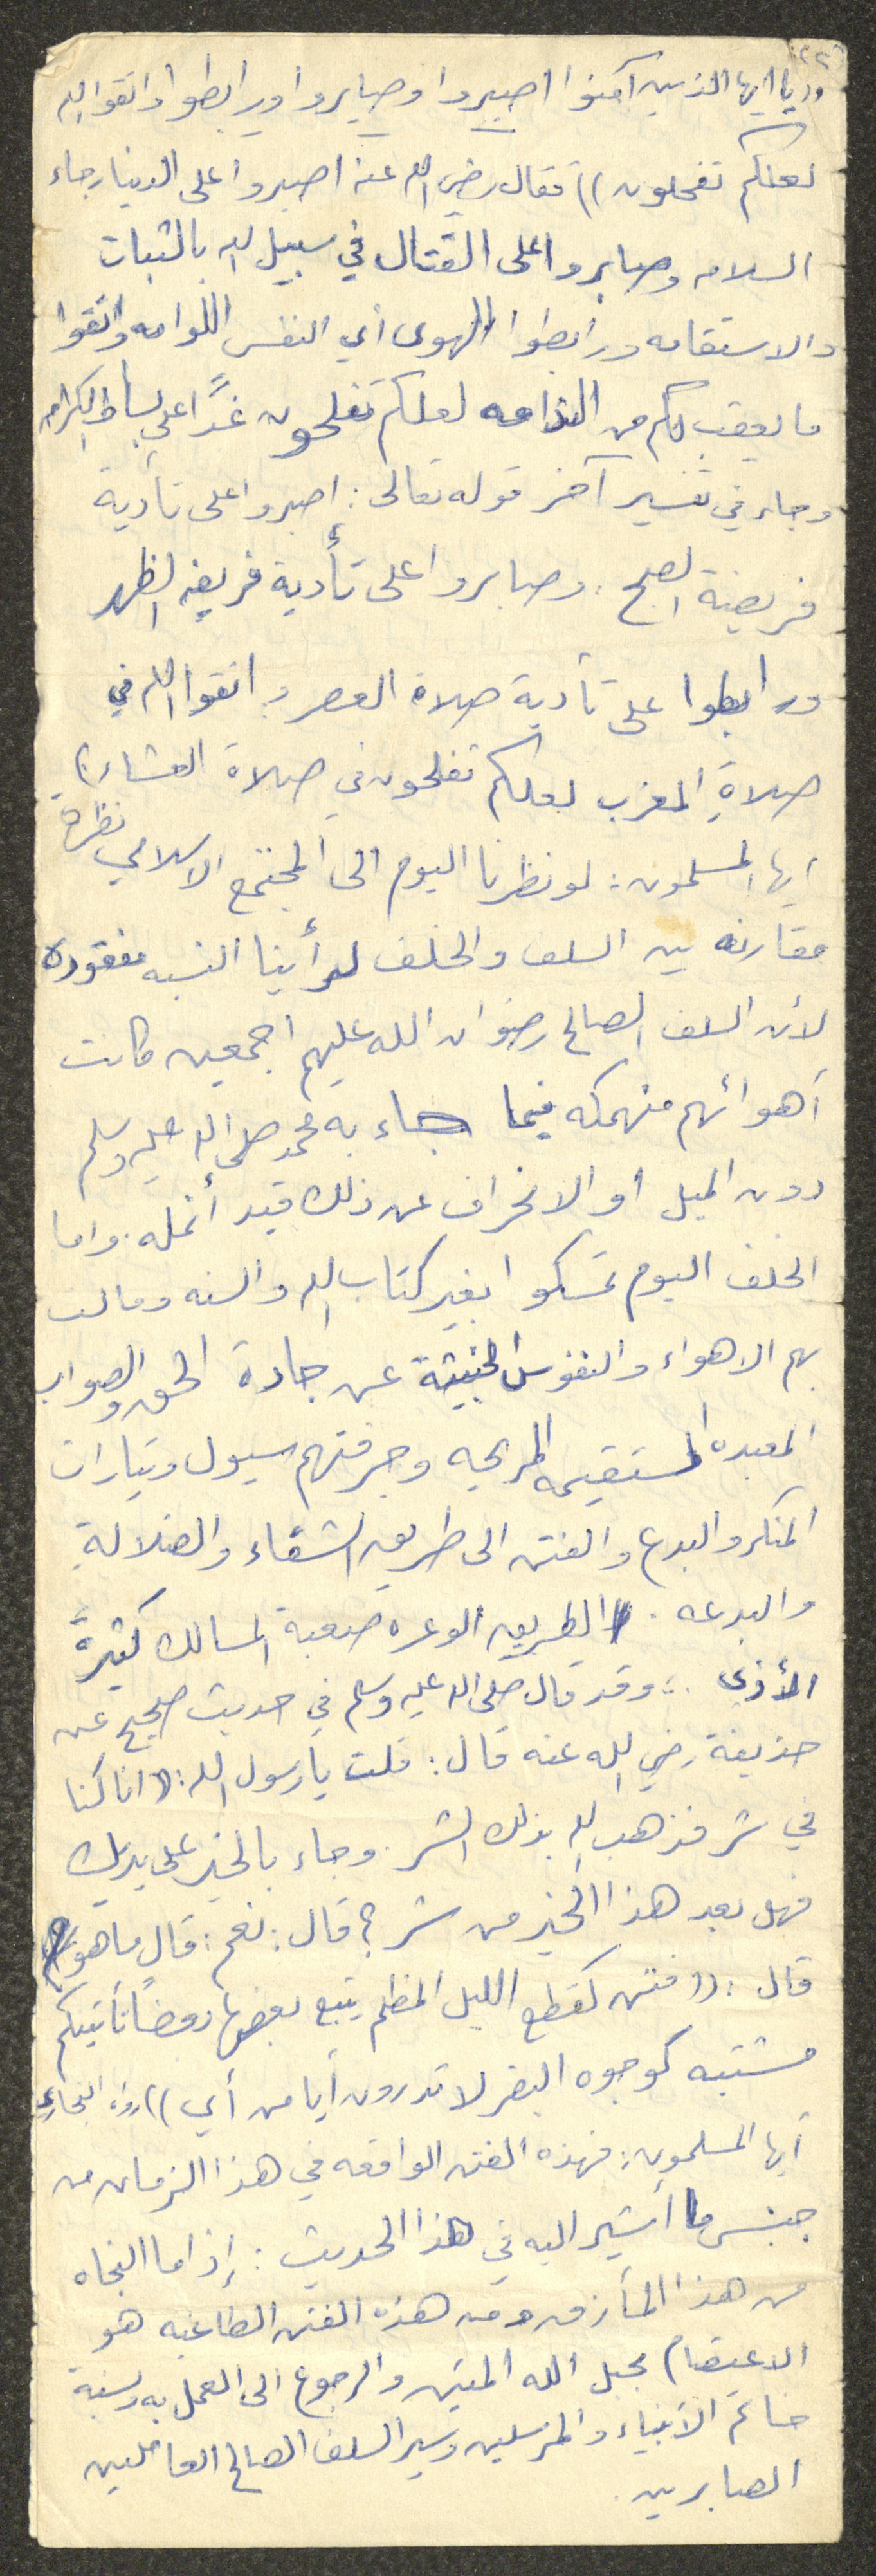 ((يا ايها الذين آمنوا اصبروا وصابروا ورابطوا واتقوا الله
لعلكم تفحلون)) فقال رضي الله عنه اصبروا على الدينا رجاء
السلامه وصابروا على القتال في سبيل الله بالثبات
والاستقامه ورابطوا الهوى أي النفس اللوامه واتقوا
ما يعقب لكم من الندامه لعلكم تفلحون غدًا على بساط الكرامه
وجاء في تفسير آخر قوله تعالى: اصبروا على تأدية
فريضة الصبح، وصابروا على تأدية فريضه الظهر
ورابطوا على تأدية صلاة العصر واتقوا الله في
صلاة المغرب لعلكم تفلحون في صلاة العشاء))
أيها المسلمون: لو نظرنا اليوم الى المجتمع الاسلامي نظرة
مقارنه بين السلف والخلف لرأينا النسبه مفقوده
لأن السلف الصالح رضوان الله عليهم اجمعين كانت
أهوائهم منهمكه فيما جاء به محمد صلى الله عليه وسلم
دون الميل او الانحراف عن ذلك قيد أنمله. واما
الخلف اليوم تمسكوا بغير كتاب الله والسنه ومالت
بهم الاهواء والنفوس الخبيثة عن جادة الحق والصواب
المعبده المستقيمه المريحه وجرفتهم سيول وتيارات
المنكر والبدع والفتن الى طريق الشقاء والضلالة
والبدعه. الطريق الوعره صعبة المسالك كثيرة
الأذى .. وقد قال صلى الله عليه وسلم في حديث صحيح عن
حذيفة رضي الله عنه قال: قلت يا رسول الله: ((انا كنا
في شر فذهب الله بذلك الشر. وجاء بالخير على يديك
فهل بعد هذا الخير من شر؟ قال: نعم: قال ما هو؟
قال: ((فتن كقطع الليل المظلم يتبع بعضها بعضًا تأتيكم
مشتبه كوجوه البقر لا تدرون أيا من أي)) رواه البخاري
أيها المسلمون: فهذه الفتن الواقعه في هذا الزمان من
جنس ما أشير اليه في هذا الحديث: إذ اما النجاه
من هذا المأزق ومن هذه الفتن الطاغيه هو
الاعتصام بحبل الله المتين والرجوع الى العمل به وبسنة
خاتم الأنبياء والمرسلين وسير السلف الصالح العاملين
الصابرين.